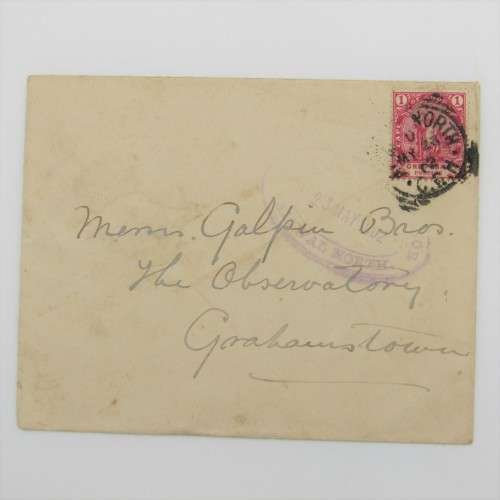 1 1
ONE PENNY
NORTH
C.G.H
23 MAY 02
AL NORTH
Messrs Galpin Bros.
The Observatory
Grahamstown